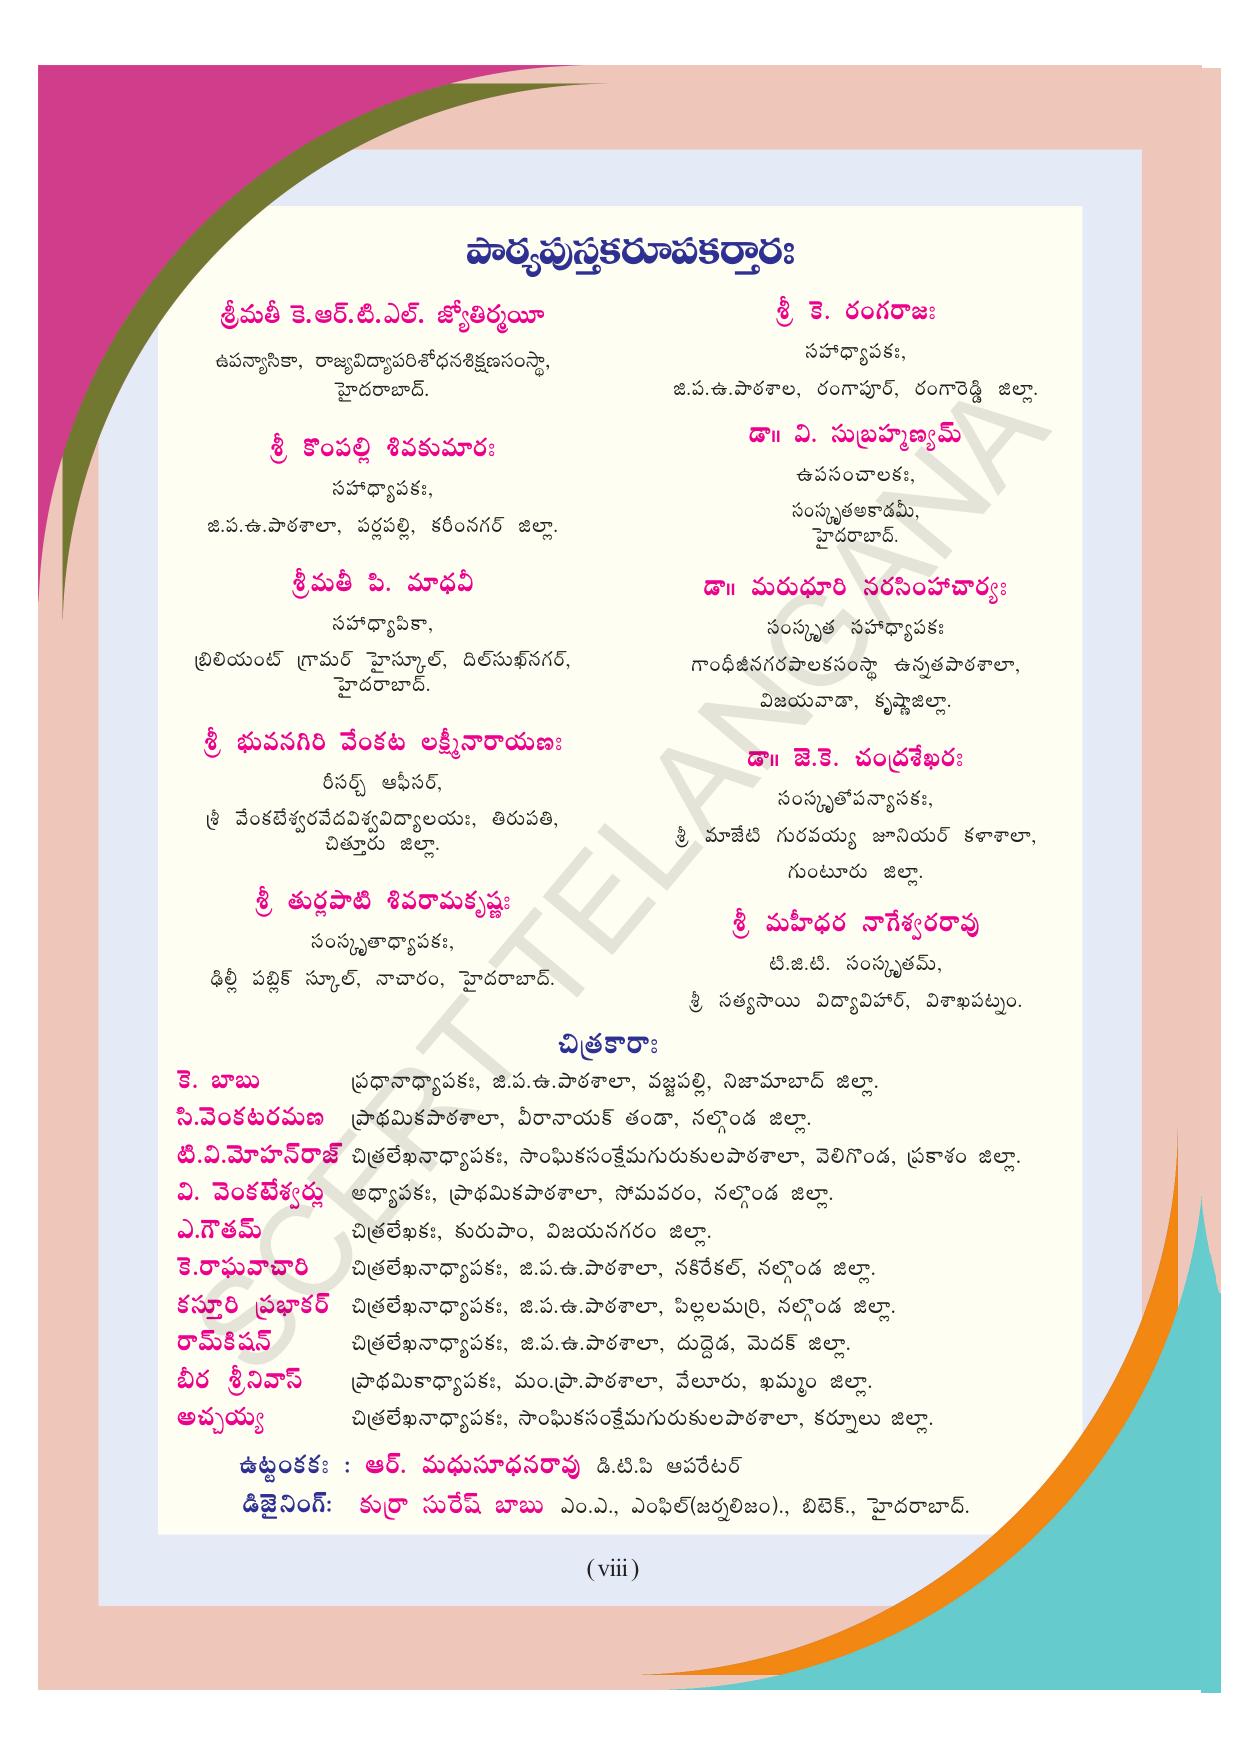 పాఠ్యపుస్తకరూపకర్తారః
శ్రీమతీ కె.ఆర్.టి.ఎల్. జ్యోతిర్మయీ
ఉపన్యాసికా, రాజ్యవిద్యాపరిశోధనశిక్షణసంస్థా,
హైదరాబాద్.
శ్రీ కొంపల్లి శివకుమారః
సహాధ్యాపకః,
జి.ప.ఉ.పాఠశాలా, పర్లపల్లి, కరీంనగర్ జిల్లా.
శ్రీమతీ పి. మాధవీ
సహాధ్యాపికా,
బ్రిలియంట్ గ్రామర్ హైస్కూల్, దిల్‌సుఖ్‌నగర్,
హైదరాబాద్.
శ్రీ భువనగిరి వేంకట లక్ష్మీనారాయణః
రీసర్చ్ ఆఫీసర్,
శ్రీ వేంకటేశ్వరవేదవిశ్వవిద్యాలయః, తిరుపతి,
చిత్తూరు జిల్లా.
శ్రీ తుర్లపాటి శివరామకృష్ణః
సంస్కృతాధ్యాపకః,
ఢిల్లీ పబ్లిక్ స్కూల్, నాచారం, హైదరాబాద్.
శ్రీ కె. రంగరాజః
సహాధ్యాపకః,
జి.ప.ఉ.పాఠశాల, రంగాపూర్, రంగారెడ్డి జిల్లా.
డా॥ వి. సుబ్రహ్మణ్యమ్
ఉపసంచాలకః,
సంస్కృతఅకాడమీ,
హైదరాబాద్.
డా॥ మరుధూరి నరసింహాచార్యః
సంస్కృత సహాధ్యాపకః
గాంధీజీనగరపాలకసంస్థా ఉన్నతపాఠశాలా,
విజయవాడా, కృష్ణాజిల్లా.
డా॥ జె.కె. చంద్రశేఖరః
సంస్కృతోపన్యాసకః,
శ్రీ మాజేటి గురవయ్య జూనియర్ కళాశాలా,
గుంటూరు జిల్లా.
శ్రీ మహీధర నాగేశ్వరరావు
టి.జి.టి. సంస్కృతమ్,
శ్రీ సత్యసాయి విద్యావిహార్, విశాఖపట్నం.
చిత్రకారాః
కె. బాబు ప్రధానాధ్యాపకః, జి.ప.ఉ.పాఠశాలా, వజ్జపల్లి, నిజామాబాద్ జిల్లా.
సి.వెంకటరమణ ప్రాథమికపాఠశాలా, వీరానాయక్ తండా, నల్గొండ జిల్లా.
టి.వి.మోహన్‌రాజ్ చిత్రలేఖనాధ్యాపకః, సాంఘికసంక్షేమగురుకులపాఠశాలా, వెలిగొండ, ప్రకాశం జిల్లా.
వి. వెంకటేశ్వర్లు అధ్యాపకః, ప్రాథమికపాఠశాలా, సోమవరం, నల్గొండ జిల్లా.
ఎ.గౌతమ్ చిత్రలేఖకః, కురుపాం, విజయనగరం జిల్లా.
కె.రాఘవాచారి చిత్రలేఖనాధ్యాపకః, జి.ప.ఉ.పాఠశాలా, నకిరేకల్, నల్గొండ జిల్లా.
కస్తూరి ప్రభాకర్ చిత్రలేఖనాధ్యాపకః, జి.ప.ఉ.పాఠశాలా, పిల్లలమర్రి, నల్గొండ జిల్లా.
రామ్‌కిషన్ చిత్రలేఖనాధ్యాపకః, జి.ప.ఉ.పాఠశాలా, దుద్దెడ, మెదక్ జిల్లా.
బీర శ్రీనివాస్ ప్రాథమికాధ్యాపకః, మం.ప్రా.పాఠశాలా, వేలూరు, ఖమ్మం జిల్లా.
అచ్చయ్య చిత్రలేఖనాధ్యాపకః, సాంఘికసంక్షేమగురుకులపాఠశాలా, కర్నూలు జిల్లా.
ఉట్టంకకః : ఆర్. మధుసూధనరావు డి.టి.పి ఆపరేటర్
డిజైనింగ్: కుర్రా సురేష్ బాబు ఎం.ఎ., ఎంఫిల్(జర్నలిజం)., బిటెక్., హైదరాబాద్.
(viii)
SCERT TELANGANA